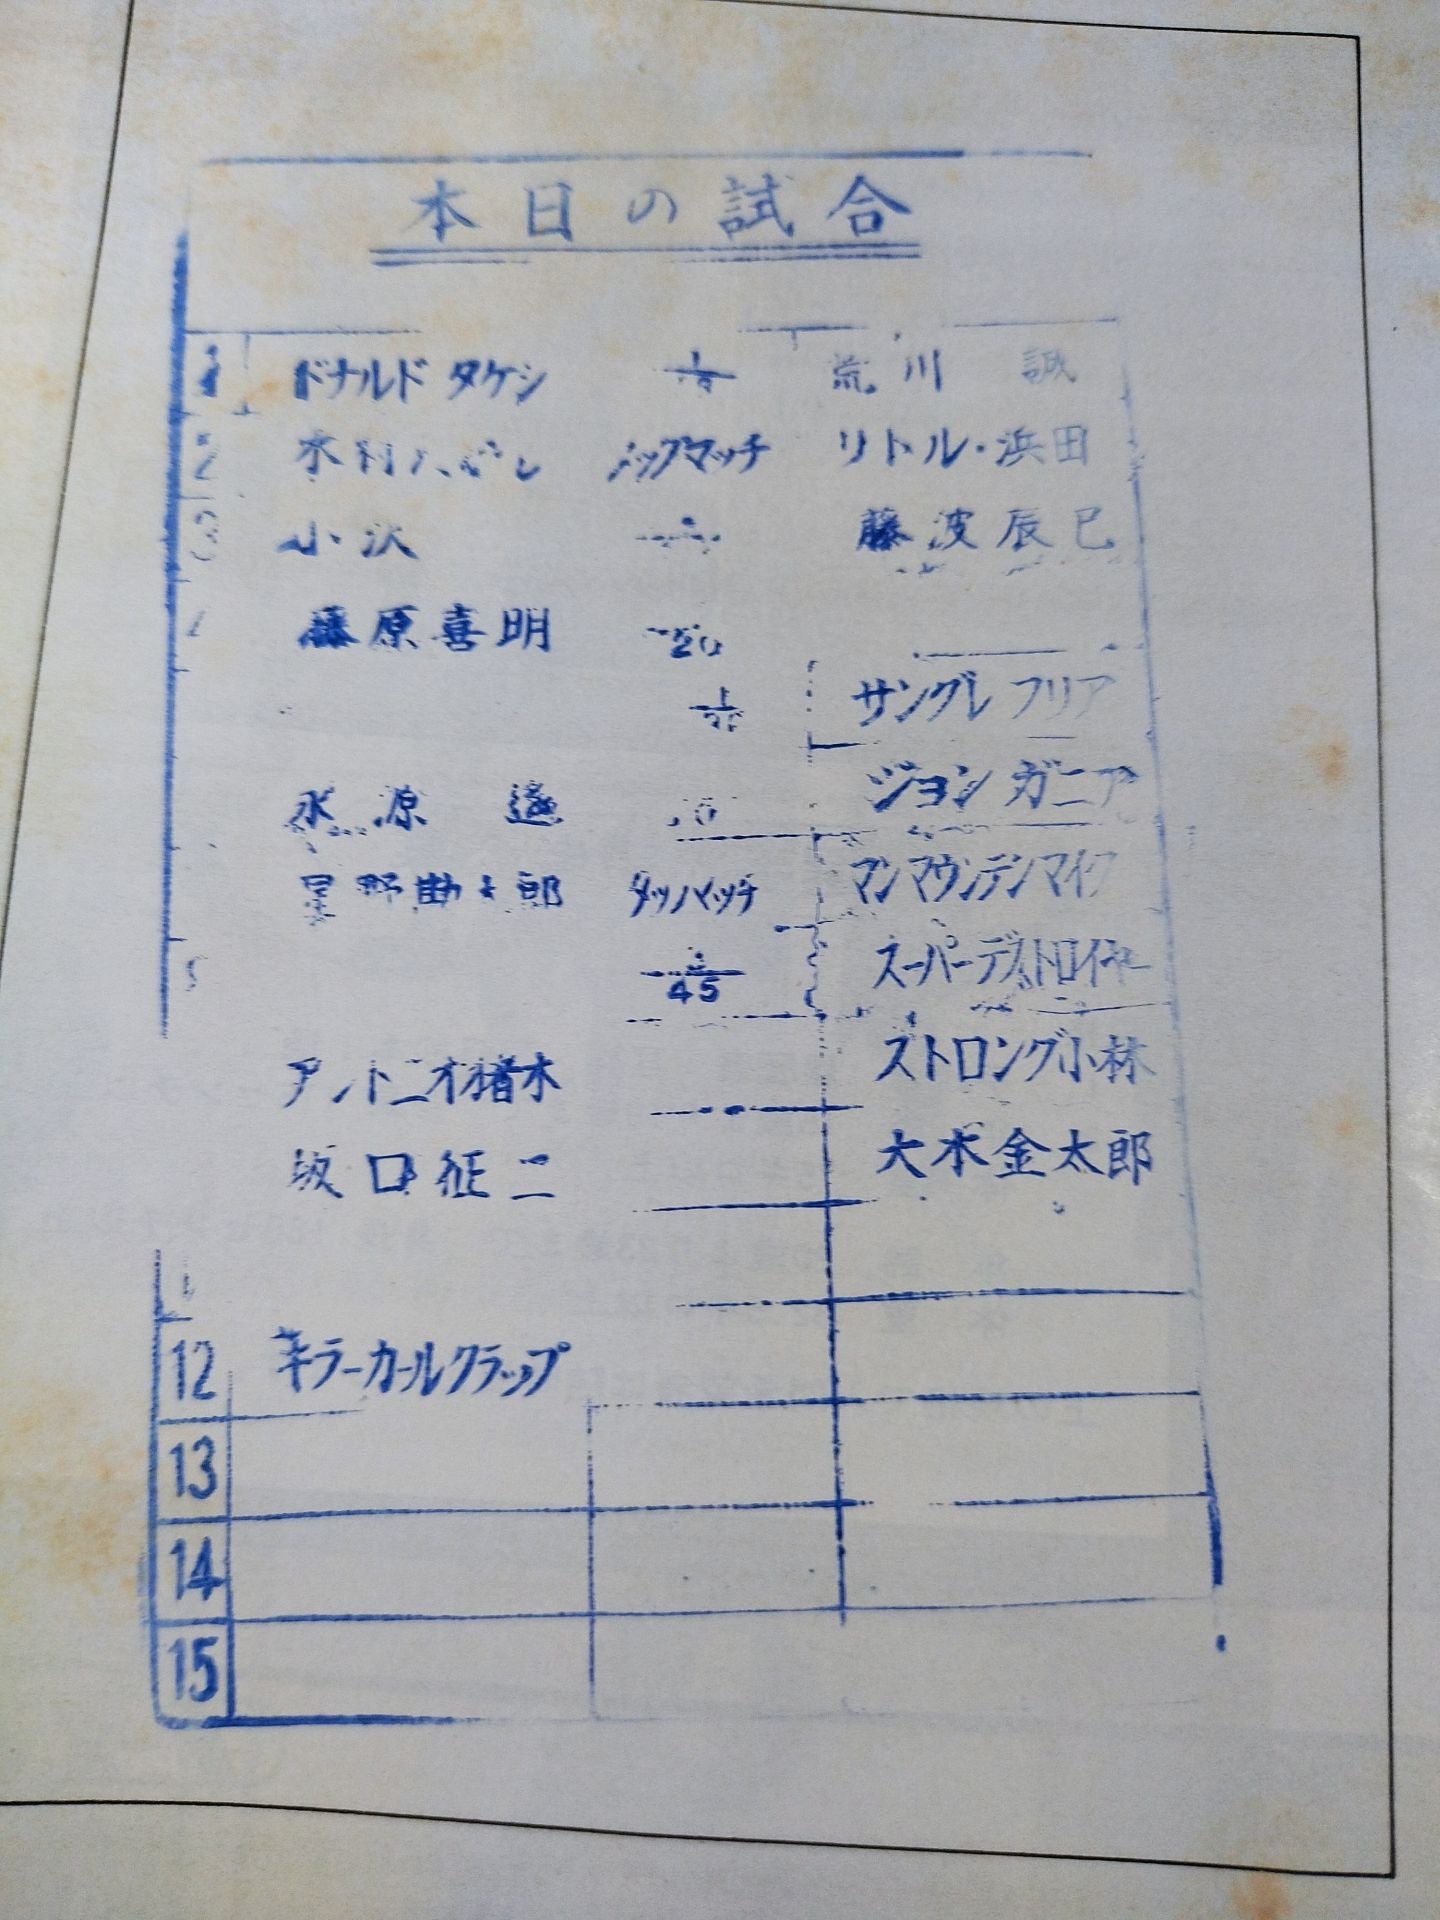 本日の試合
1 ドナルドタケシ 1/10 荒川 誠
2 リトル・浜田
3 小沢 藤波辰巳
藤原喜明 20
1 サングレ フリア
永源 遙 ジョン ガニア
星野勘太郎 タッグマッチ マンマウンテンマイク
45 スーパーデストロイヤー
アントニオ猪木 ストロング小林
坂口征二 大木金太郎
12 キラーカールクラップ
13
14
15